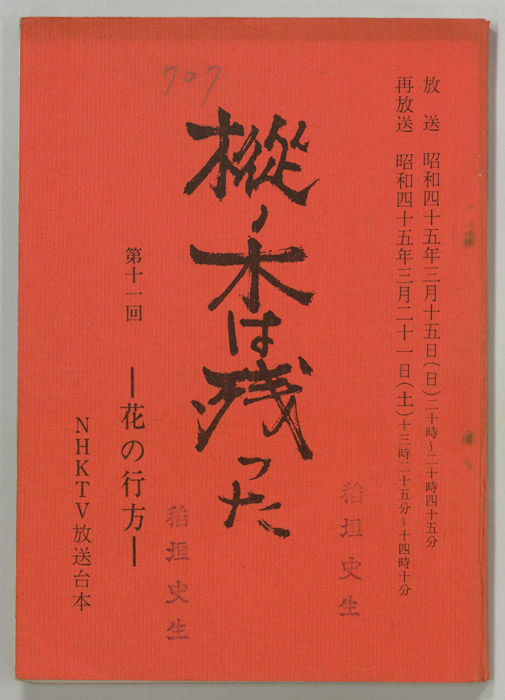 放送 昭和四十五年三月十五日(日)二十時~二十時四十五分
再放送 昭和四十五年三月二十一日(土)十三時二十五分~十四時十分
707
樅ノ木は残った
第十一回 ―花の行方―
NHKTV放送台本
稲垣史生
稲垣史生